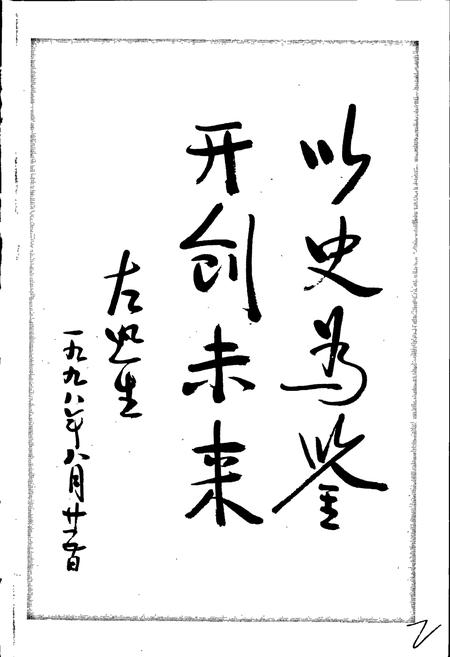 以史为鉴
开创未来
左
一九九八年八月廿五日